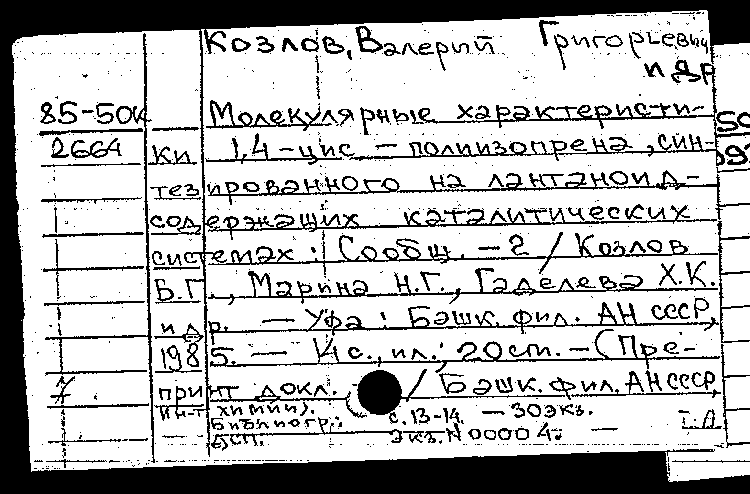 Козлов, Валерий Григорьевич
и др
85-50к Молекулярные характеристи-
2664 ки 1,4-цис - полиизопрена, син-
тезированного на лантаноид-
содержащих каталитических
системах: Сообщ. - 2 / Козлов
В.Г., Марина Н.Г., Гаделева Х.К.
и др. - Уфа: Башк. фил. АН СССР,
1985. - 14 с., ил.; 20 ст. - (Пре-
принт докл. / Башк. фил. АН СССР,
Ин-т химии).
Библиогр.: с. 13-14. - 30 экз.
ДСП. Экз. N 00004: -